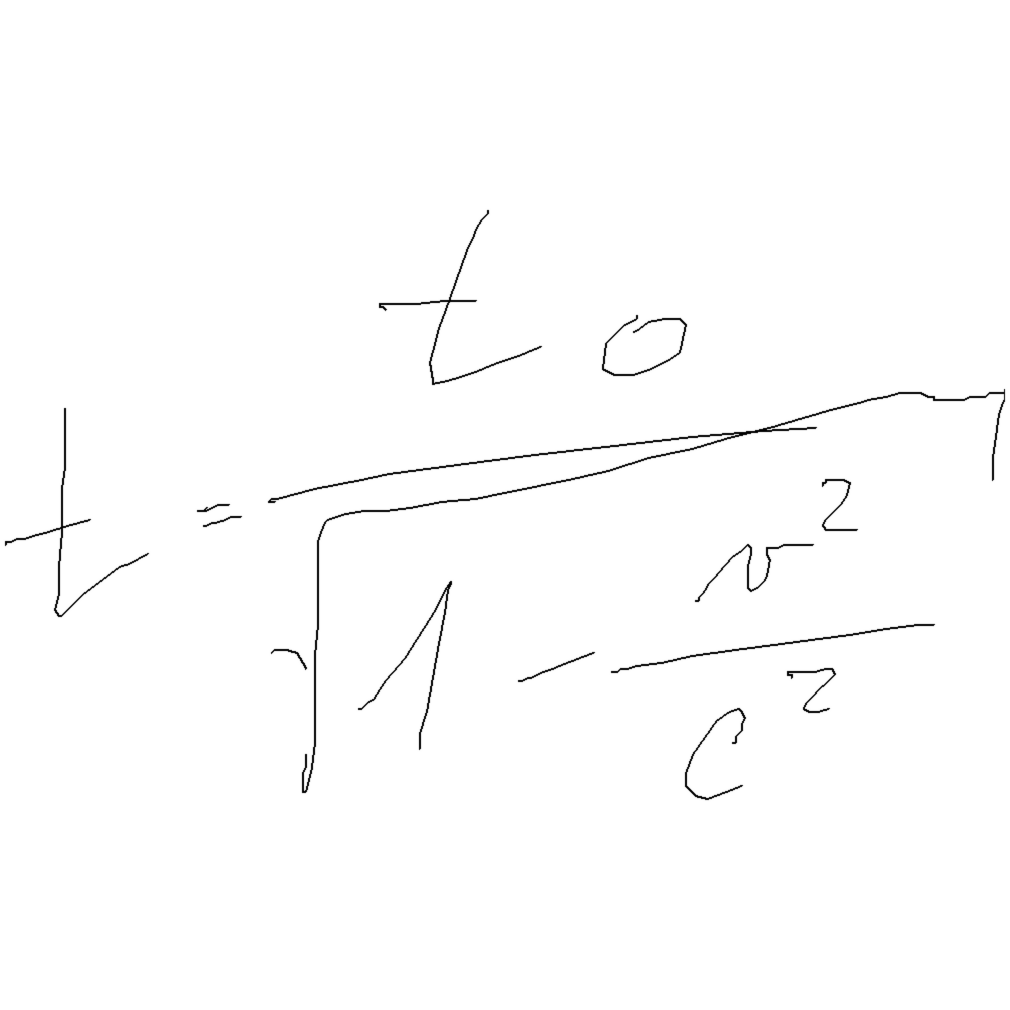 t = t₀ / √(1 - v² / c²)